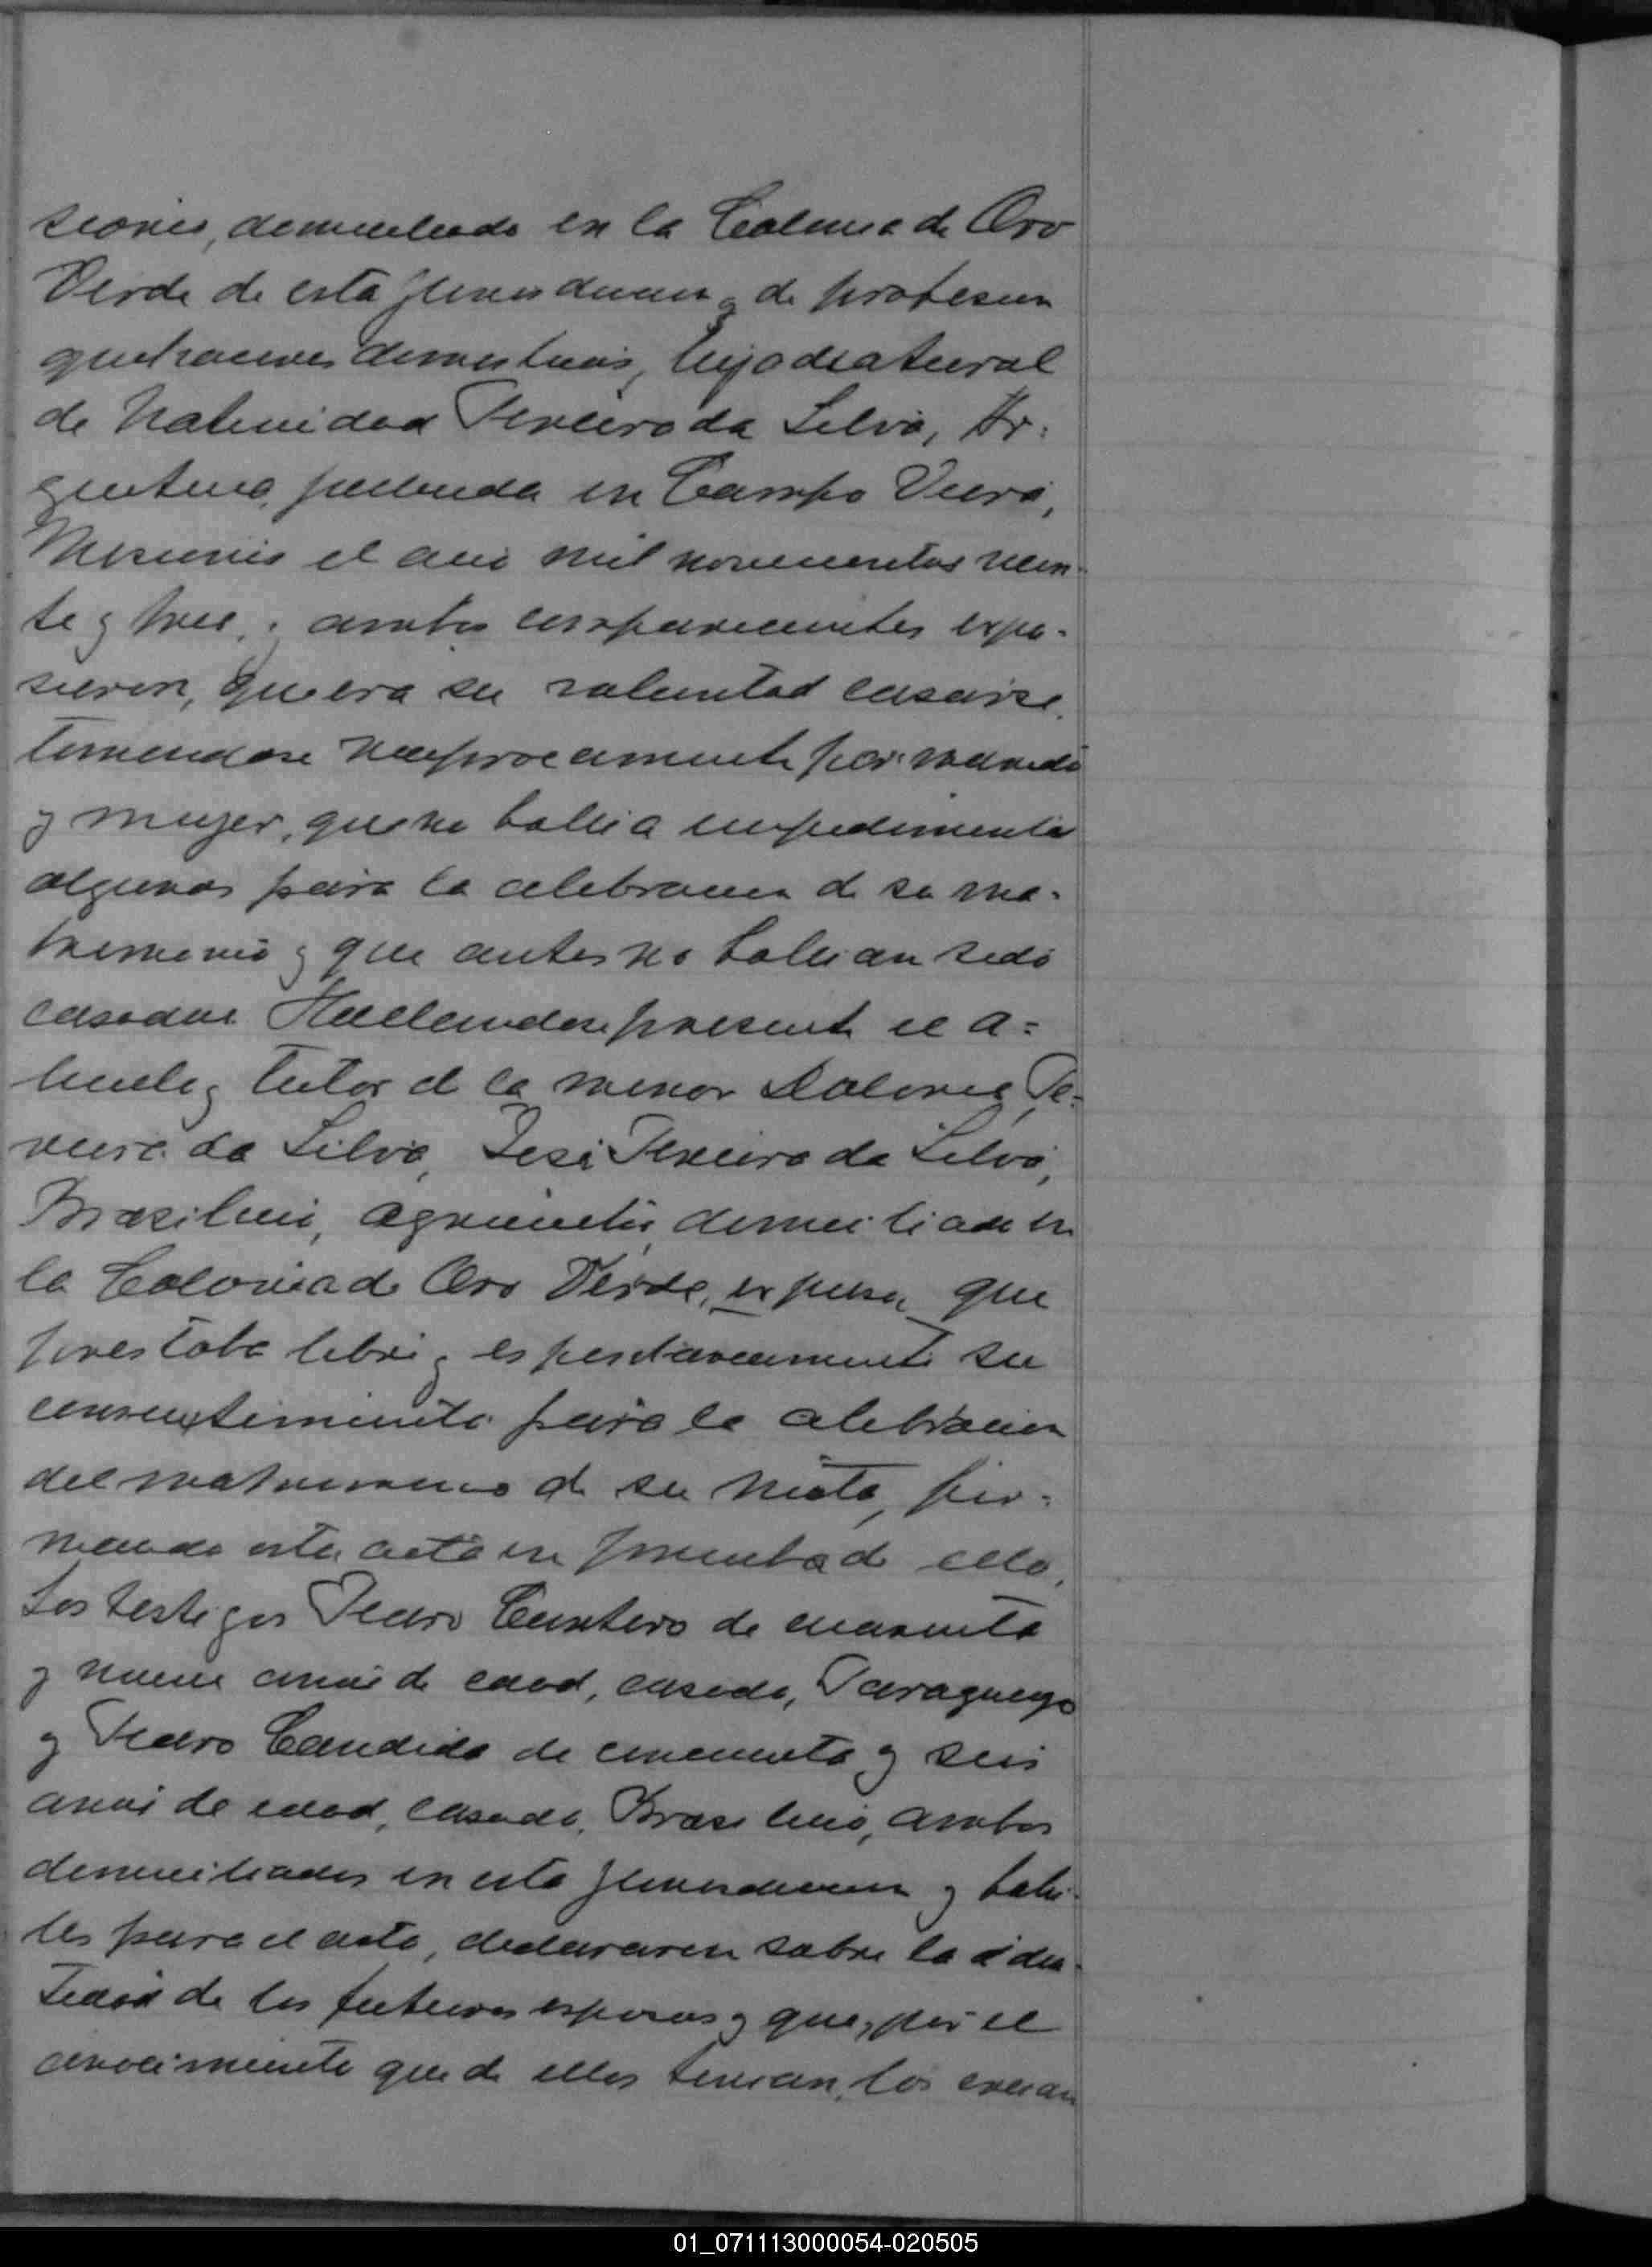 siones, domiciliada en la Colonia de Oro
Verde de esta jurisdiccion, de profesion
quehaceres domesticos, hija natural
de Natividad Texeira da Silva, Ar-
gentina, fallecida en Campo Viera,
Misiones el año mil novecientos vein-
te y tres; ambos comparecientes expu-
sieron, que era su voluntad casarse,
tomandose reciprocamente por marido
y mujer, que no habia impedimentos
algunos para la celebracion de su ma-
trimonio y que antes no habian sido
casados. Hallandose presente el a-
buelo y tutor de la menor Dolores Te-
xeira da Silva, José Texeira da Silva,
Brasileño, agricultor, domiciliado en
la Colonia de Oro Verde, expuso, que
prestaba libre y espontaneamente su
consentimiento para la celebracion
del matrimonio de su nieta, fir-
mando esta acta en prueba de ello.
Los testigos Pedro Cantero de cuarenta
y nueve años de edad, casado, Paraguayo
y Pedro Candido de cincuenta y seis
años de edad, casado, Brasileño, ambos
domiciliados en esta jurisdiccion y habi-
les para el acto, declararon sobre la iden-
tidad de los futuros esposos y que, por el
conocimiento que de ellos tenian, los creian
01_071113000054-020505